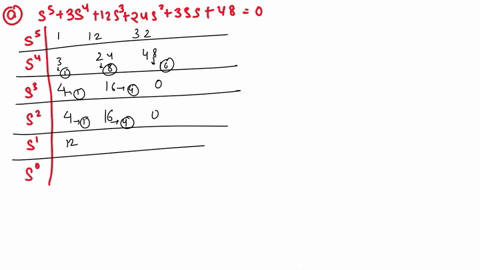 a s⁵+3s⁴+12s³+24s²+35s+48=0
s⁵ 1 12 32
s⁴ 3 24 48
1 8 6
s³ 4→1 16→4 0
s² 4→1 16→4 0
s¹ 12
s⁰